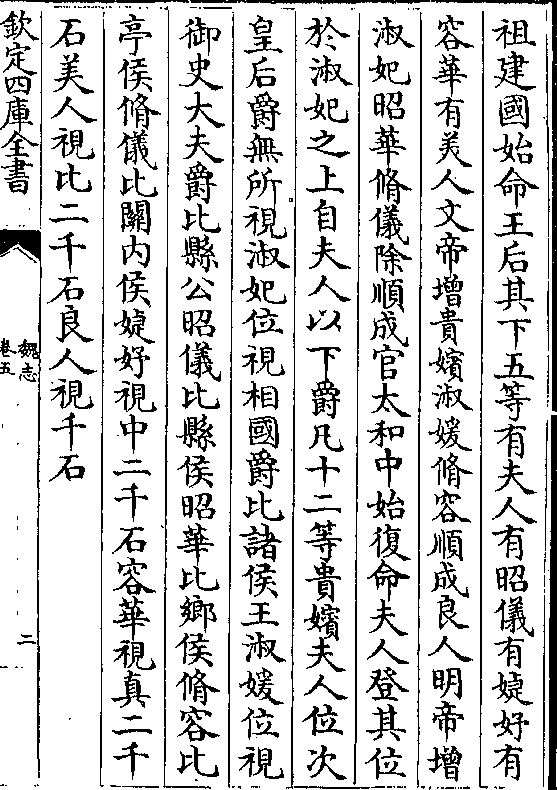 祖建國始命王后其下五等有夫人有昭儀有婕妤有
容華有美人文帝增貴嬪淑媛脩容順成良人明帝增
淑妃昭華脩儀除順成官太和中始復命夫人登其位
於淑妃之上自夫人以下爵凡十二等貴嬪夫人位次
皇后爵無所視淑妃位視相國爵比諸侯王淑媛位視
御史大夫爵比縣公昭儀比縣侯昭華比鄉侯脩容比
亭侯脩儀比關內侯婕妤視中二千石容華視真二千
石美人視比二千石良人視千石
欽定四庫全書
魏志
卷五
二